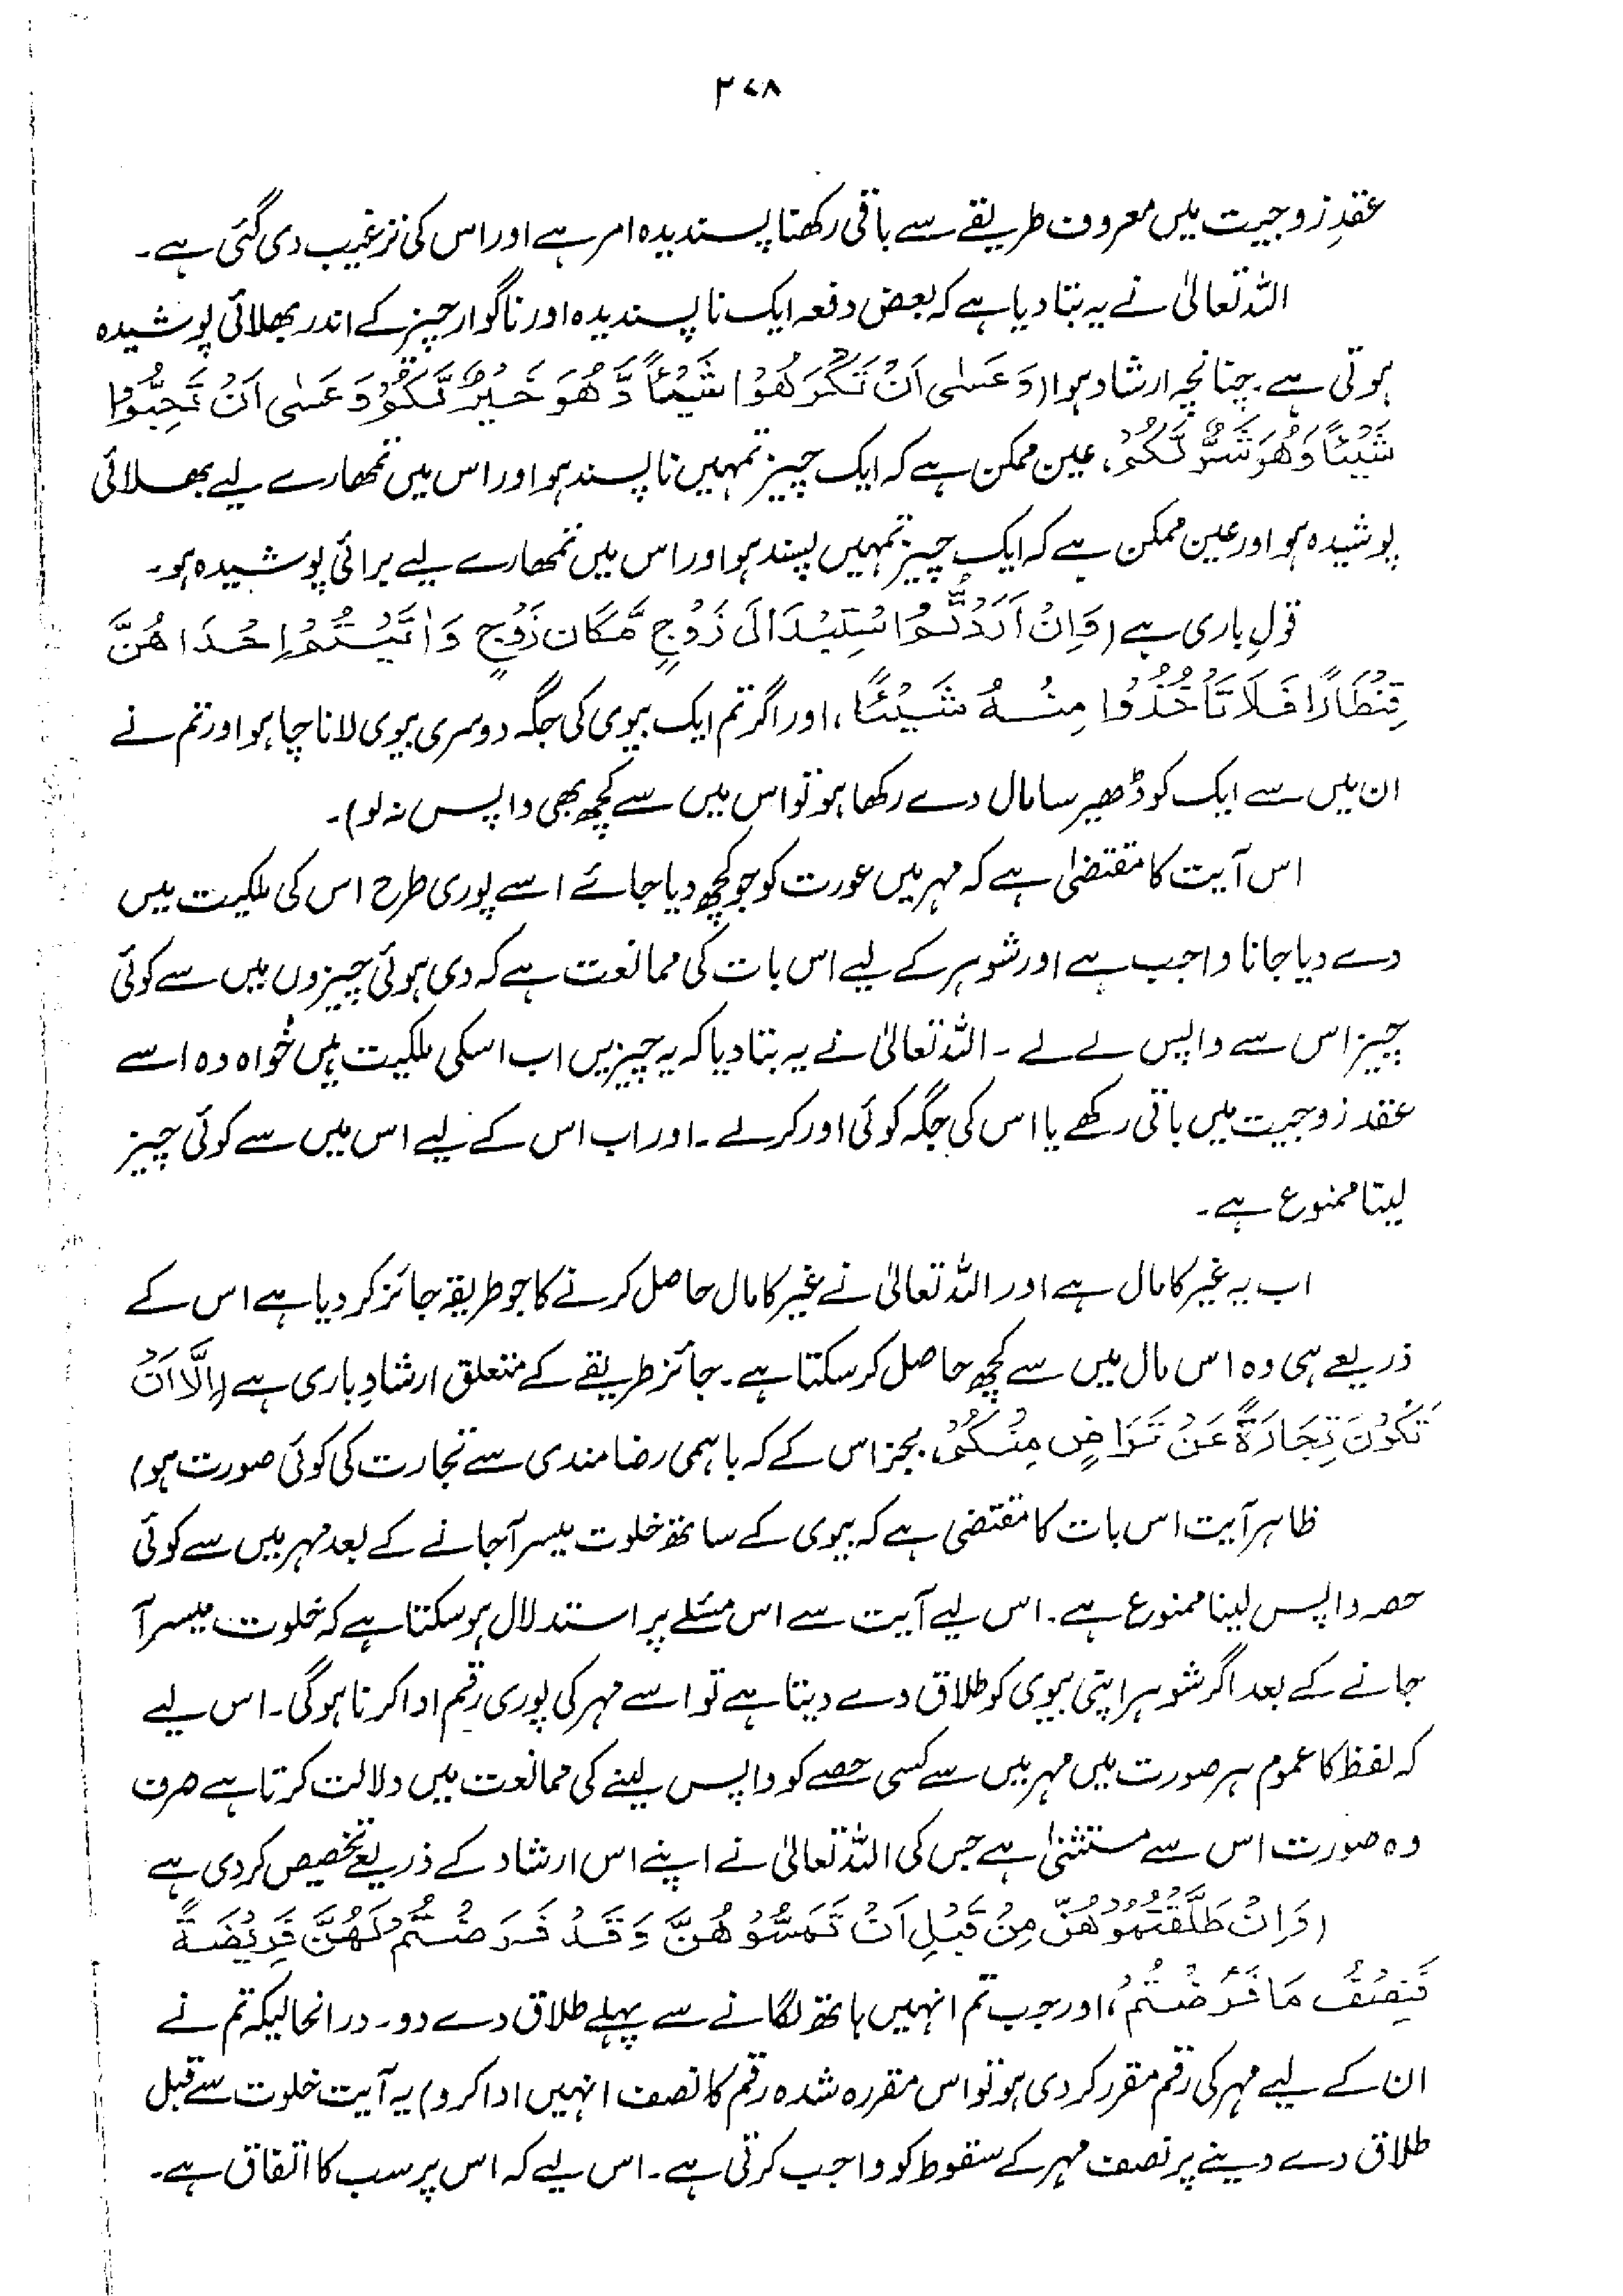 ۲۷۸
عقدِ زوجیت میں معروف طریقے سے باقی رکھنا پسندیدہ امر ہے اور اس کی ترغیب دی گئی ہے۔
اللہ تعالیٰ نے یہ بتا دیا ہے کہ بعض دفعہ ایک ناپسندیدہ اور ناگوار چیز کے اندر بھلائی پوشیدہ
ہوتی ہے۔ چنانچہ ارشاد ہوا (وَعَسٰى اَنْ تَكْرَهُوْا شَيْئًا وَّهُوَ خَيْرٌ لَّكُمْ وَعَسٰى اَنْ تُحِبُّوْا
شَيْئًا وَّهُوَ شَرٌّ لَّكُمْ، عین ممکن ہے کہ ایک چیز تمہیں ناپسند ہو اور اس میں تمھارے لیے بھلائی
پوشیدہ ہو اور عین ممکن ہے کہ ایک چیز تمہیں پسند ہو اور اس میں تمھارے لیے برائی پوشیدہ ہو۔
قولِ باری ہے (وَاِنْ اَرَدْتُّمُ اسْتِبْدَالَ زَوْجٍ مَّكَانَ زَوْجٍ وَاٰتَيْتُمْ اِحْدَاهُنَّ
قِنْطَارًا فَلَا تَاْخُذُوْا مِنْهُ شَيْئًا، اور اگر تم ایک بیوی کی جگہ دوسری بیوی لانا چاہو اور تم نے
ان میں سے ایک کو ڈھیر سا مال دے رکھا ہو تو اس میں سے کچھ بھی واپس نہ لو)۔
اس آیت کا مقتضیٰ ہے کہ مہر میں عورت کو جو کچھ دیا جائے اسے پوری طرح اس کی ملکیت میں
دے دیا جانا واجب ہے اور شوہر کے لیے اس بات کی ممانعت ہے کہ دی ہوئی چیزوں میں سے کوئی
چیز اس سے واپس لے لے۔ اللہ تعالیٰ نے یہ بتا دیا کہ یہ چیزیں اب اسکی ملکیت ہیں خواہ وہ اسے
عقد زوجیت میں باقی رکھے یا اس کی جگہ کوئی اور کر لے۔ اور اب اس کے لیے اس میں سے کوئی چیز
لینا ممنوع ہے۔
اب یہ غیر کا مال ہے اور اللہ تعالیٰ نے غیر کا مال حاصل کرنے کا جو طریقہ جائز کر دیا ہے اس کے
ذریعے ہی وہ اس مال میں سے کچھ حاصل کر سکتا ہے۔ جائز طریقے کے متعلق ارشادِ باری ہے (اِلَّا اَنْ
تَكُوْنَ تِجَارَةً عَنْ تَرَاضٍ مِنْكُمْ، بجز اس کے کہ باہمی رضامندی سے تجارت کی کوئی صورت ہو)
ظاہر آیت اس بات کا مقتضی ہے کہ بیوی کے ساتھ خلوت میسر آجانے کے بعد مہر میں سے کوئی
حصہ واپس لینا ممنوع ہے۔ اس لیے آیت سے اس مسئلے پر استدلال ہو سکتا ہے کہ خلوت میسر آ
جانے کے بعد اگر شوہر اپنی بیوی کو طلاق دے دیتا ہے تو اسے مہر کی پوری رقم ادا کرنا ہوگی۔ اس لیے
کہ لفظ کا عموم ہر صورت میں مہر میں سے کسی حصے کو واپس لینے کی ممانعت میں دلالت کرتا ہے صرف
وہ صورت اس سے مستثنیٰ ہے جس کی اللہ تعالیٰ نے اپنے اس ارشاد کے ذریعے تخصیص کر دی ہے
(وَاِنْ طَلَّقْتُمُوْهُنَّ مِنْ قَبْلِ اَنْ تَمَسُّوْهُنَّ وَقَدْ فَرَضْتُمْ لَهُنَّ فَرِيْضَةً
فَنِصْفُ مَا فَرَضْتُمْ، اور جب تم انہیں ہاتھ لگانے سے پہلے طلاق دے دو۔ درانحالیکہ تم نے
ان کے لیے مہر کی رقم مقرر کر دی ہو تو اس مقررہ شدہ رقم کا نصف انہیں ادا کرو) یہ آیت خلوت سے قبل
طلاق دے دینے پر نصف مہر کے سقوط کو واجب کرتی ہے۔ اس لیے کہ اس پر سب کا اتفاق ہے۔